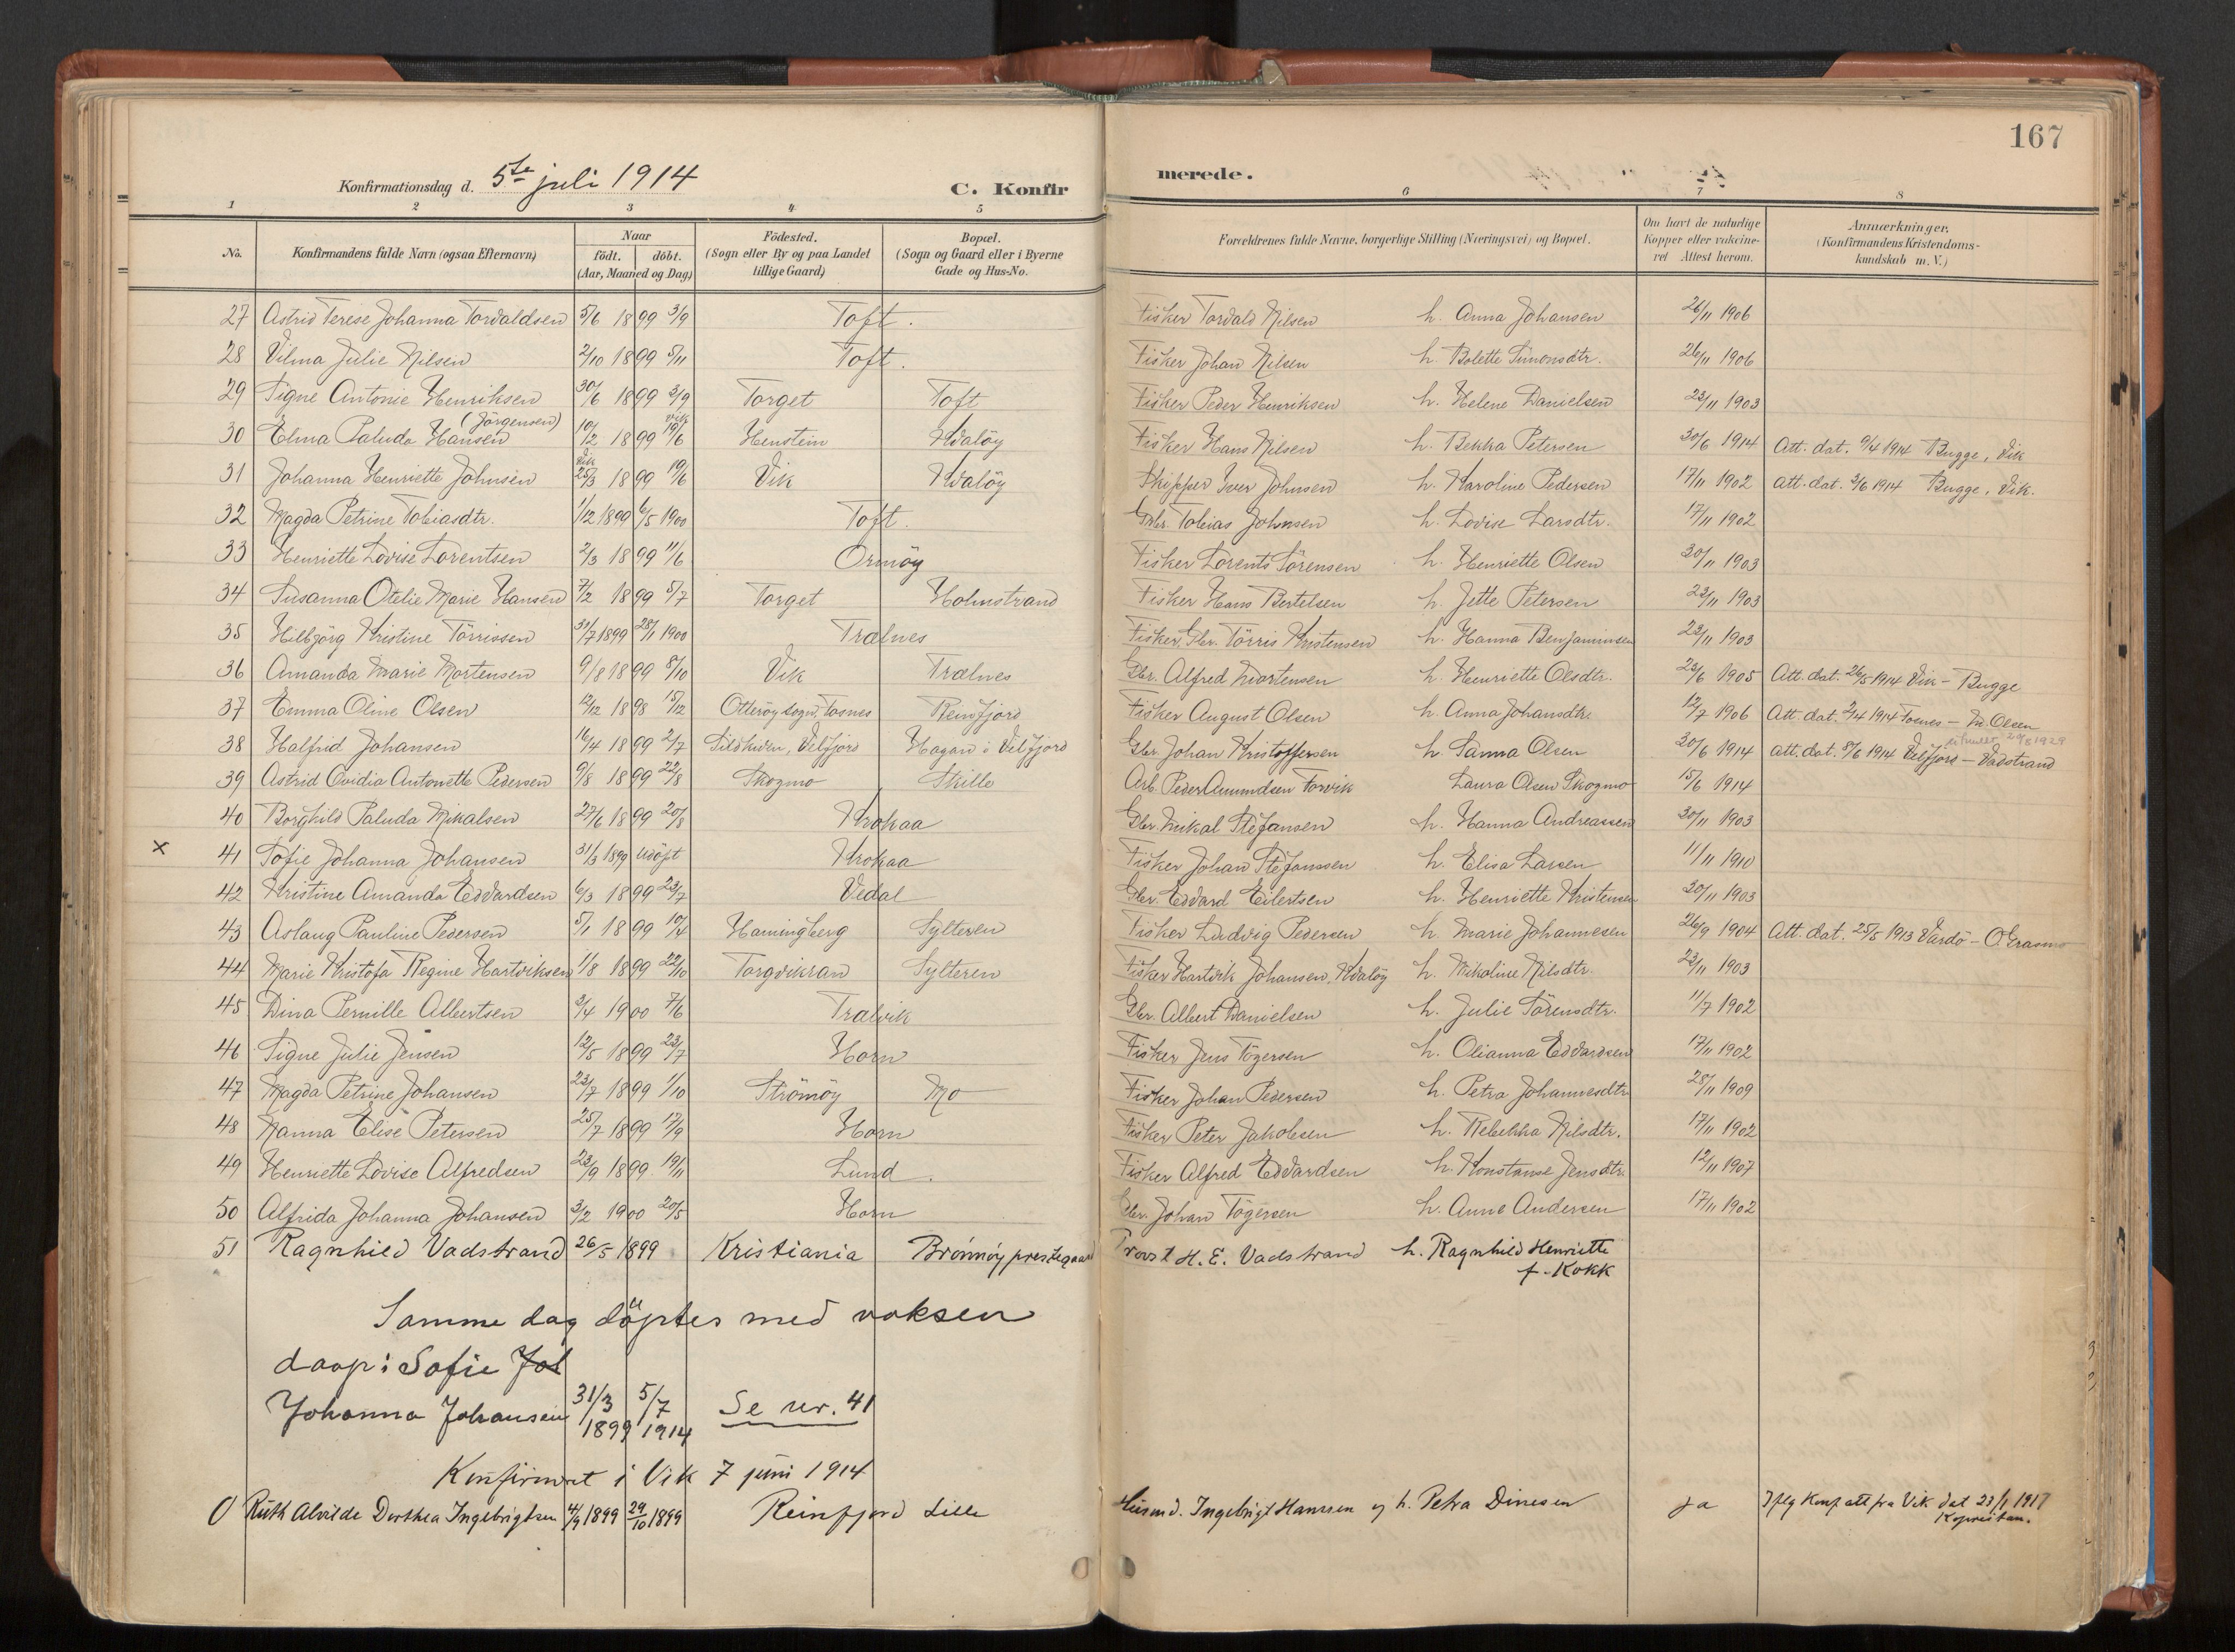 167
Konfirmationsdag d. 5te juli 1914 C. Konfirmerede.
1 2 3 4 5 6 7 8
No. Konfirmandens fulde Navn (ogsaa Efternavn) Naar födt. döbt. (Aar, Maaned og Dag) Födested. (Sogn eller By og paa Landet tillige Gaard) Bopæl. (Sogn og Gaard eller i Byerne Gade og Hus-No. Forældrenes fulde Navne, borgerlige Stilling (Næringsvei) og Bopæl. Om havt de naturlige Kopper eller vakcineret Attest herom. Anmærkninger. (Konfirmandens Kristendomskundskab m. V.)
27 Astrid Terese Johanna Tordaldsen 5/6 1899 3/9 Toft. Fisker Tordald Nilsen h. Anna Johansen 26/11 1906
28 Vilma Julie Nilsen 2/10 1899 5/11 Toft. Fisker Johan Nilsen h. Bolette Simonsdtr. 26/11 1906
29 Signe Antonie Henriksen 30/6 1899 3/9 Torget Toft Fisker Peder Henriksen h. Helene Danielsen 23/11 1903
30 Elma Paluda Hansen (Jörgensen) 10/2 1899 Vik 19/6 Henstein Hvalöy Fisker Hans Nilsen h. Bekka Petersen 30/6 1914 Att. dat. 9/4 1914 Bugge, Vik
31 Johanna Henriette Johnsen Vik 25/3 1899 19/6 Vik Hvalöy Skipper Iver Johnsen h. Karoline Pedersen 17/11 1902 Att. dat. 3/6 1914 Bugge, Vik.
32 Magda Petrine Tobiasdtr. 1/12 1899 6/5 1900 Toft. Gbr. Tobias Johnsen h. Lovise Larsdtr. 17/11 1902
33 Henriette Lovise Lorentsen 2/3 1899 11/6 Ormöy Fisker Lorents Sörensen h. Henriette Olsen 30/11 1903
34 Susanna Otelie Marie Hansen 7/2 1899 5/7 Torget Holmstrand Fisker Hans Bertelsen h. Jette Petersen 23/11 1903
35 Hilbjörg Kristine Törrissen 31/7 1899 28/1 1900 Trælnes Fisker, Gbr. Törris Kristensen h. Hanna Benjaminsen 23/11 1903
36 Amanda Marie Mortensen 9/8 1899 8/10 Vik Trælnes Gbr. Alfred Mortensen h. Henriette Olsdtr. 23/6 1905 Att. dat. 26/5 1914 Vik - Bugge
37 Emma Oline Olsen 12/12 1898 15/12 Otteröy sogn, Fosnes Remfjord Fisker August Olsen h. Anna Johansdtr. 12/7 1906 Att. dat. 2/4 1914 Fosnes - M. Olsen
38 Halfrid Johansen 16/4 1899 2/7 Sildhiven, Velfjord Hagan i Velfjord Gbr. Johan Kristoffersen h. Sanna Olsen 30/6 1914 Att. dat. 8/6 1914 Velfjord - Vadstrand
39 Astrid Ovidia Antonette Pedersen 9/8 1899 22/8 Skogmo Skille Arb. Peder Amundsen Torvik Laura Olsen Skogmo 15/6 1914
40 Borghild Paluda Mikalsen 27/6 1899 20/8 Krokaa Gbr. Mikal Stefansen h. Hanna Andreassen 30/11 1903
x 41 Sofie Johanna Johansen 31/3 1899 Udöpt Krokaa Fisker Johan Stefanssen h. Elisa Larsen 11/11 1910
42 Kristine Amanda Edvardsen 6/3 1899 23/7 Vedal Gbr. Edvard Eilertsen h. Henriette Kristensen 30/11 1903
43 Aslaug Pauline Pedersen 5/1 1899 10/4 Hamingberg Sylteren Fisker Ludvig Pedersen h. Marie Johannesen 26/9 1904 Att. dat. 25/5 1913 Vardö - O Grasmo
44 Marie Kristofa Regine Hartviksen 1/8 1899 22/10 Torgvikran Sylteren Fisker Hartvik Johansen, Hvalöy h. Nikoline Nilsdtr. 23/11 1903
45 Dina Pernille Albertsen 3/4 1900 7/6 Trælvik Gbr. Albert Danielsen h. Julie Sörensdtr. 11/7 1902
46 Signe Julie Jensen 12/5 1899 23/7 Horn Fisker Jens Tögersen h. Olianna Edvardsen 17/11 1902
47 Magda Petrine Johansen 23/7 1899 1/10 Strömöy Mo Fisker Johan Pedersen h. Petra Johannesdtr 28/11 1909
48 Nanna Elise Petersen 25/7 1899 17/9 Horn Fisker Peter Jakobsen h. Rebekka Nilsdtr. 17/11 1902
49 Henriette Lovise Alfredsen 23/9 1899 19/11 Lund. Fisker Alfred Edvardsen h. Konstanse Jensdtr. 12/11 1907
50 Alfrida Johanna Johansen 3/2 1900 20/5 Horn Gbr. Johan Tögersen h. Anne Andersen 17/11 1902
51 Ragnhild Vadstrand 26/5 1899 Kristiania Brönnöy prestegaard Provst H. E. Vadstrand h. Ragnhild Henriette
f. Kokk
Samme dag döptes med voksen
daap: Sofie Joh
Johanna Johansen 31/3 1899 5/7 1914 Se nr. 41
Konfirmeret i Vik 7 juni 1914
0 Ruth Alvilde Dorthea Ingebrigtsen 4/9 1899 29/10 1899 Reinfjord Lille Husmd. Ingebrigt Hanssen og h. Petra Dinesen ja Iflg Konf att fra Vik dat 23/1 1917